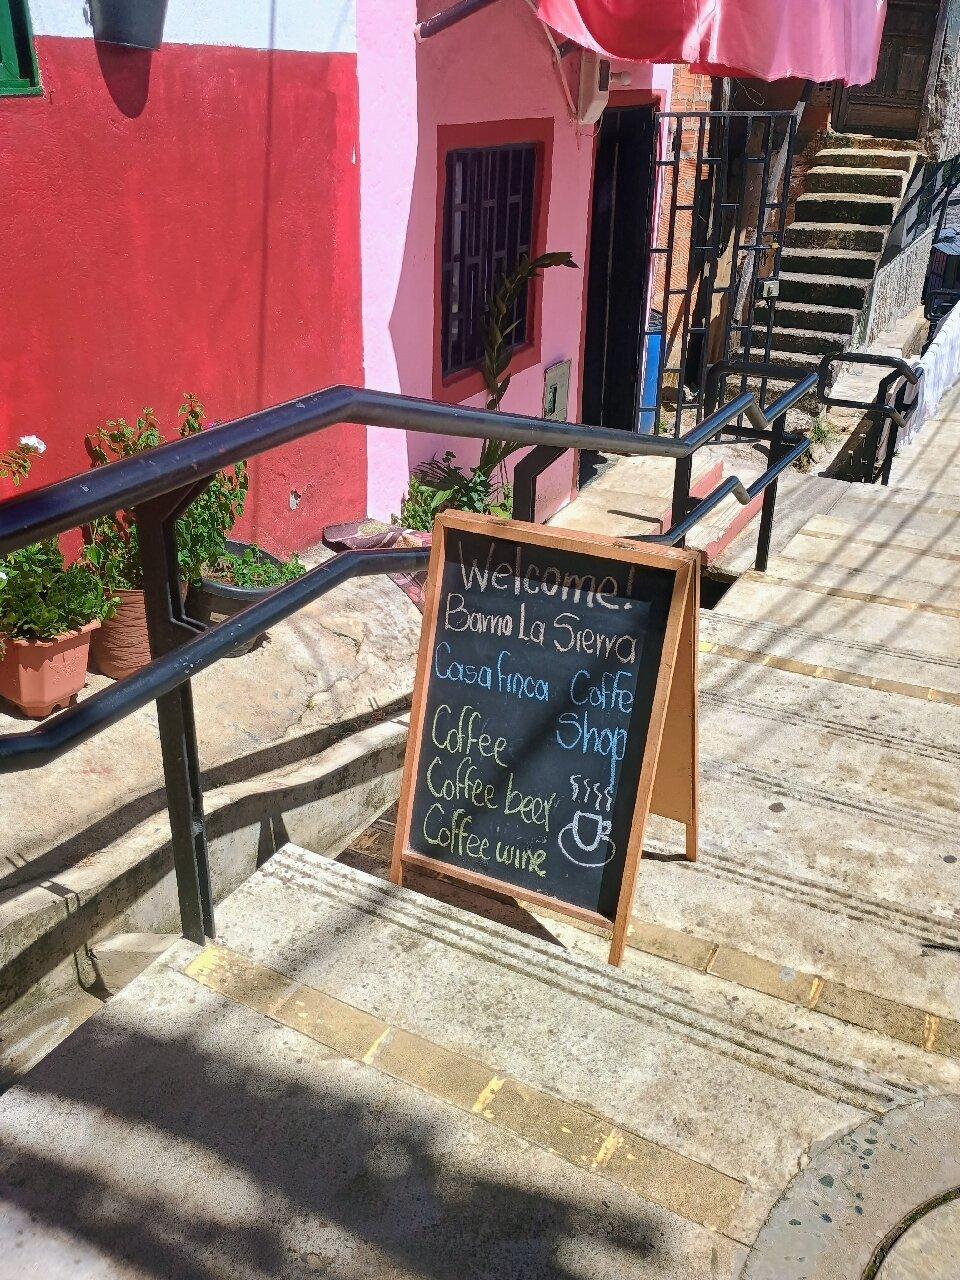 Welcome!
Barrio La Sierra
Casa finca Coffe
Shop
Coffee
Coffee beer
Coffee wine